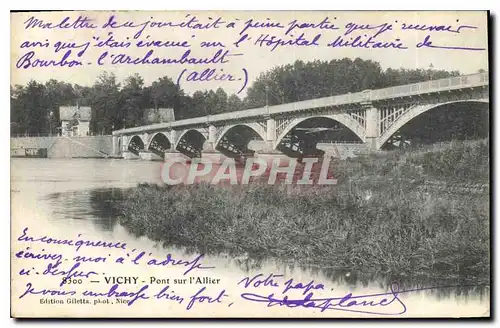 Ma lettre de ce jour était à peine partie que je recevais
avis que j'étais évacué sur l'Hôpital Militaire de
Bourbon-l'Archambault
(Allier)
CPARAMA
En conséquence
écrivez-moi à l'adresse
ci-dessus
8300 — VICHY - Pont sur l'Allier
Je vous embrasse bien fort
Votre papa
Edition Giletta, phot., Nice